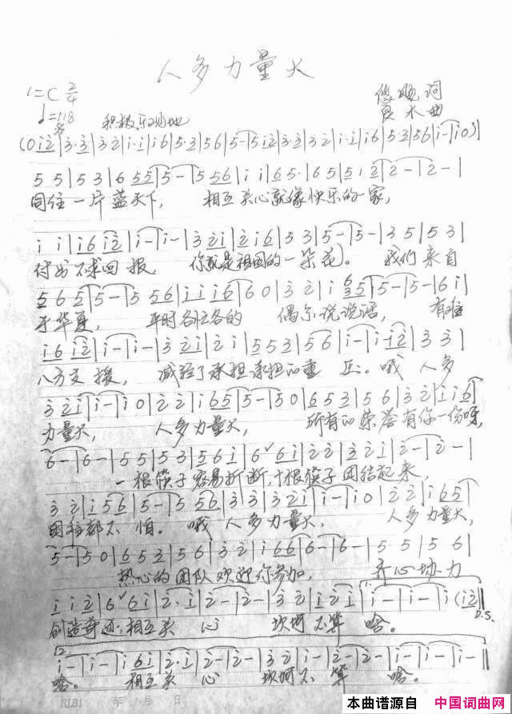 人多力量大
1=C 2/4
词
♩=118
积极 乐观地
水 曲
(0 i 2 | 3·3 | 3 2 | i·i | i 6 | 5·3 | 5 6 | 5 - | 5 i 2 | 3·3 | 3 2 | i·i | i 6 | 5·3 | 5 6 | i - | i 0)
5 5 | 5 3 | 6 5 5 | 5 - | 5 5 6 | i i | 6 5· | 6 5 | 5 i 2 | 2 - | 2 - |
同住一片蓝天下， 相互关心就像快乐的一家，
i i | i 6 i 2 | i - | i - | 3 2 i | 2 i 6 | 5 3 | 5 - | 5 - | 3 5 | 5 3 |
付出不求回报， 你我是祖国的一朵花。 我们来自
5 6 5 | 5 - | 5 5 6 | i i i 6 | 6 0 | 3 2 | i | 5 - | 5 - | 6 i |
于华夏， 平时各忙各的 偶尔说说话， 有难
i 6 i 2 | i - | i - | 3 2 i | 2 i | 5 5 3 | 5 6 | i - | i · i 2 | 3 3 |
八方支援， 减轻了承担承担的重压。哦 人多
3 2 i | i - | i 0 | 2 2 | i 6 5 | 5 - | 5 0 | 6 5 3 | 5 6 | 3 2 | i i 6 |
力量大， 人多力量大， 所有的荣誉有你一份呀，
6 - | 6 - | 5 5 | 5 3 | 5 6 i | 6 ˅ 6 i | 2 2 | 3 2 i | 2 - | 2 - |
一根筷子容易折断，十根筷子团结起来
3 2 | i 5 6 | 5 - | 5 5 6 | 3 3 | 3 2 i | i - | i 0 | 2 2 | i 6 5 |
困难都不怕。 哦 人多力量大， 人多力量大，
5 - | 5 0 | 6 5 3 | 5 6 | 3 2 | i 6 6 | 6 - | 6 - | 5 5 | 5 6 |
热心的团队欢迎你参加， 齐心协力
i i 2 | 6 ˅ 6 i | 2·i | 2 - | 2 - | 3 2 | i 2 i | i - | i - | i (i 2)
创造奇迹，相互关心 坎坷不算啥。
D.S.
2
i - | i - | i 6 i | 2·i | 2 - | 2 - | 3 2 | i 2 | i - | i - | i - | i - ‖
啥。 相互关心 坎坷不算啥。
年 月 日
本曲谱源自 中国词曲网